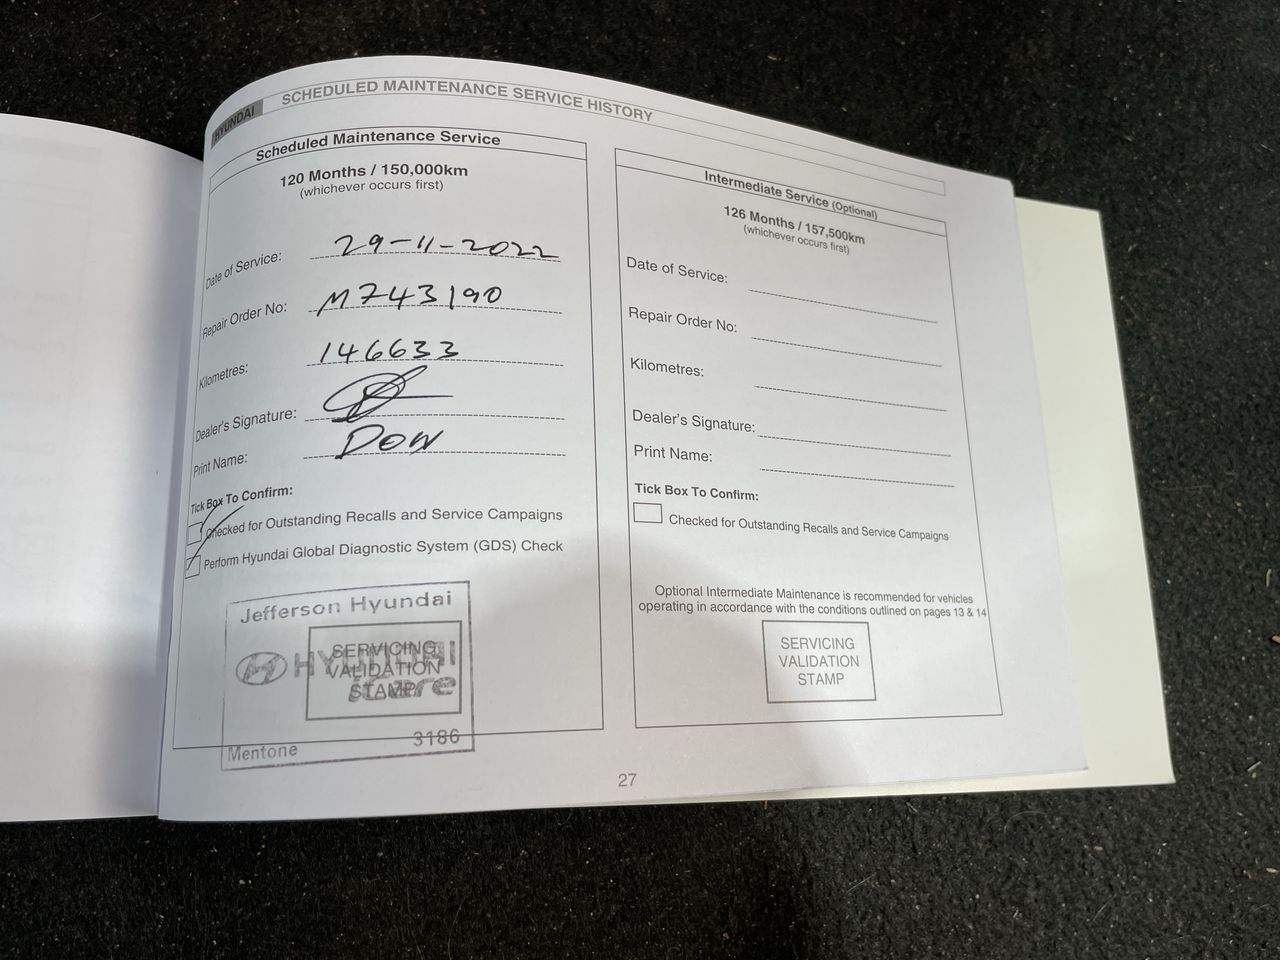 HYUNDAI SCHEDULED MAINTENANCE SERVICE HISTORY
Scheduled Maintenance Service
120 Months / 150,000km
(whichever occurs first)
Date of Service: 29-11-2022
Repair Order No: M743190
Kilometres: 146633
Dealer's Signature:
Print Name: DOW
Tick Box To Confirm:
Checked for Outstanding Recalls and Service Campaigns
Perform Hyundai Global Diagnostic System (GDS) Check
Jefferson Hyundai
SERVICING
HYUNDAI
VALIDATION
iCare
STAMP
Mentone 3186
Intermediate Service (Optional)
126 Months / 157,500km
(whichever occurs first)
Date of Service:
Repair Order No:
Kilometres:
Dealer's Signature:
Print Name:
Tick Box To Confirm:
Checked for Outstanding Recalls and Service Campaigns
Optional Intermediate Maintenance is recommended for vehicles
operating in accordance with the conditions outlined on pages 13 & 14
SERVICING
VALIDATION
STAMP
27